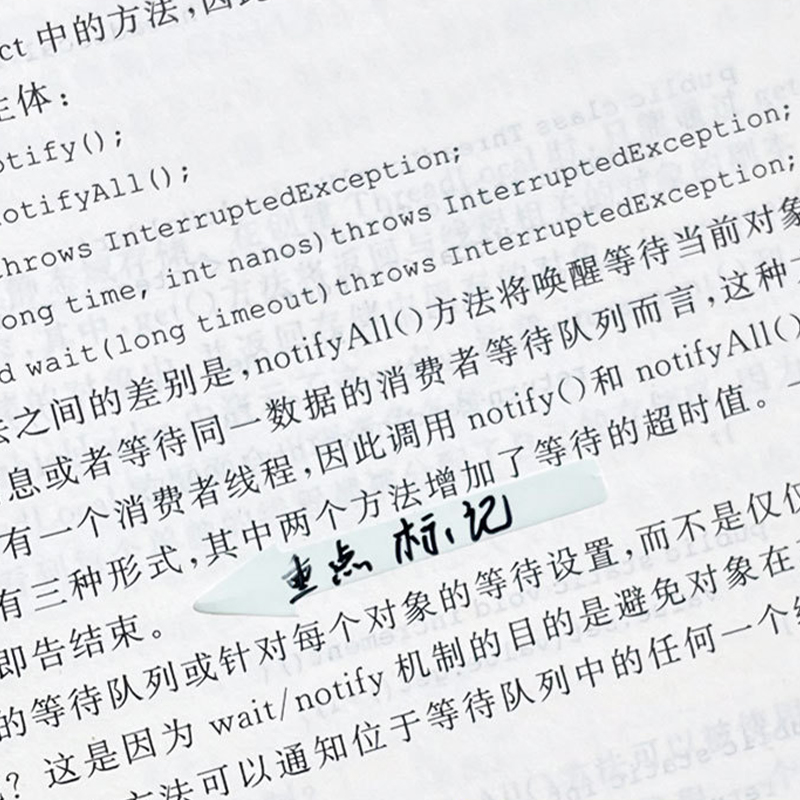 ct 中的方法,因此
主体:
otify();
notifyAll();
throws InterruptedException;
ong time, int nanos)throws InterruptedException;
d wait(long timeout)throws InterruptedException;
法之间的差别是,notifyAll()方法将唤醒等待当前对象
息或者等待同一数据的消费者等待队列而言,这种
有一个消费者线程,因此调用 notify()和 notifyAll()
有三种形式,其中两个方法增加了等待的超时值。一
重点标记
即告结束。
的等待队列或针对每个对象的等待设置,而不是仅仅
? 这是因为 wait/notify 机制的目的是避免对象在
方法可以通知位于等待队列中的任何一个